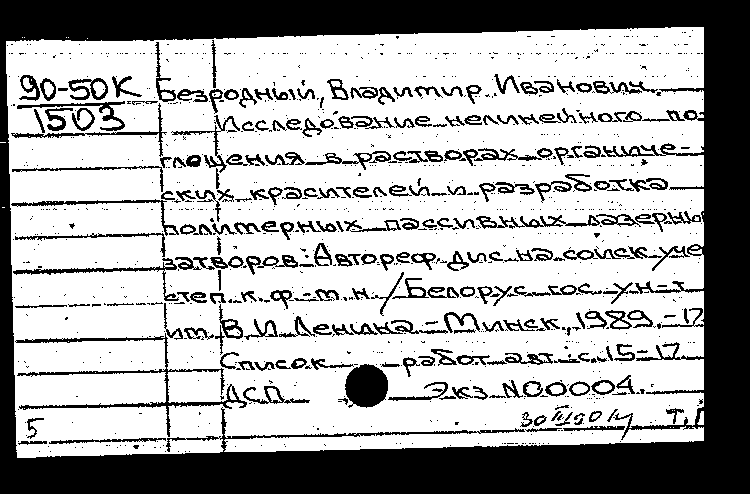 90-50К Безродный, Владимир Иванович.
1503 Исследование нелинейного по-
глощения в растворах органиче-
ских красителей и разработка
полимерных пассивных лазерны
затворов: Автореф. дис. на соиск. уче
степ. к. ф.-т. н. / Белорус. гос. ун-т
им. В.И. Ленина. - Минск, 1989. - 17
Список работ авт.: с. 15-17
ДСП Экз. № 00004.
5 Т.